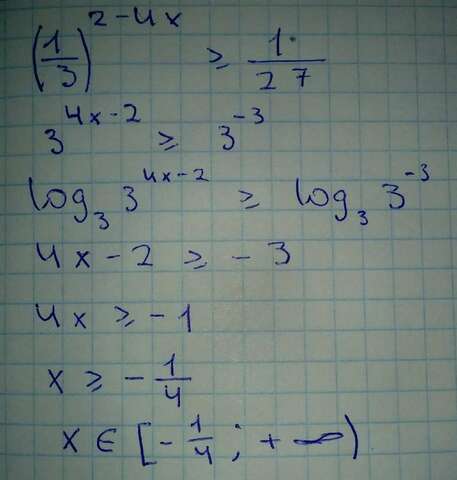 (1/3)^(2-4x) ≥ 1/27
3^(4x-2) ≥ 3^(-3)
log₃ 3^(4x-2) ≥ log₃ 3^(-3)
4x - 2 ≥ - 3
4x ≥ - 1
x ≥ - 1/4
x ∈ [- 1/4 ; + ∞)